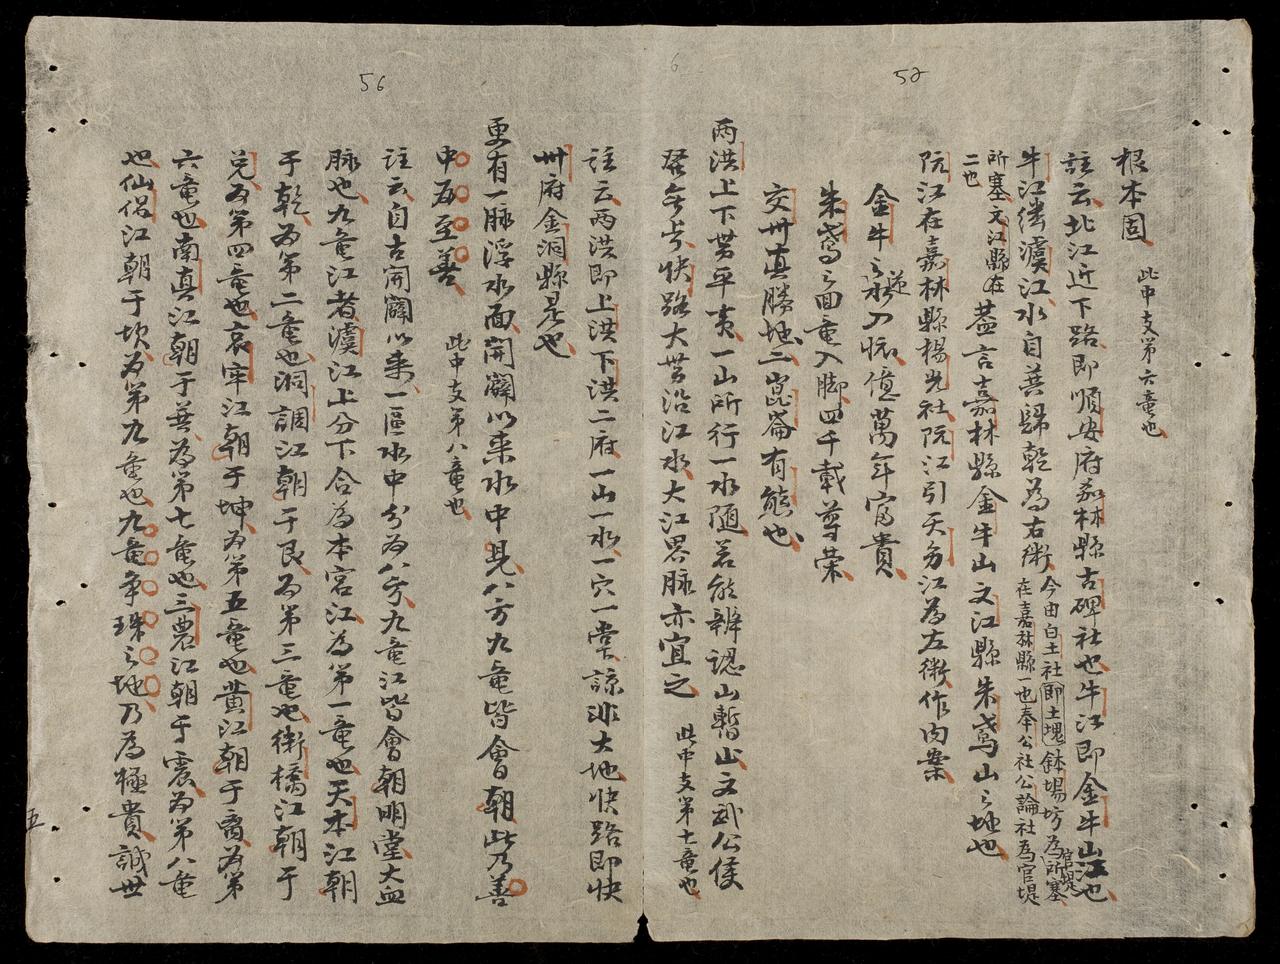 52
根本固 此中支第六竜也
註云北江近下路即順安府茄林縣古碑社也牛江即金牛山江也
牛江從濊江水自善歸乾為右衛今由白土社即土塊鉢場坊為所塞官堤
在嘉林縣一也奉公社公論社為官堤
所塞文江縣在二也
蓋言嘉林縣金牛山文江縣朱鳶山之地也
阮江在嘉林縣楊光社阮江引天多江為左衛作内案
金牛之逆水入懷億萬年富貴
朱鳶之回竜入脚四千載尊荣
交州真勝地二崑崙有態也
兩洪上下势平夷一山所行一水隨若能辨認山暫止文武公侯
發無亏快路大势沿江水大江界脉亦宜之 此中支第七竜也
56
註云兩洪即上洪下洪二府一山一水一穴一堂諒非大地快路即快
州府金洞縣是也
更有一脉浮水面開闢以来水中見八方九竜皆會朝此乃善
中為至善 此中支第八竜也
註云自古開闢以来一區水中分为八方九竜江皆會朝明堂大血
脉也九竜江者濊江上分下合為本宮江為第一竜也天本江朝
于乾為第二竜也洞調江朝于艮為第三竜也衛橋江朝于
兌为第四竜也哀牢江朝于坤为第五竜也黄江朝于离为第
六竜也南真江朝于巽為第七竜也三農江朝于震为第八竜
也仙侶江朝于坎为第九竜也九竜争珠之地乃為極貴誠世
五